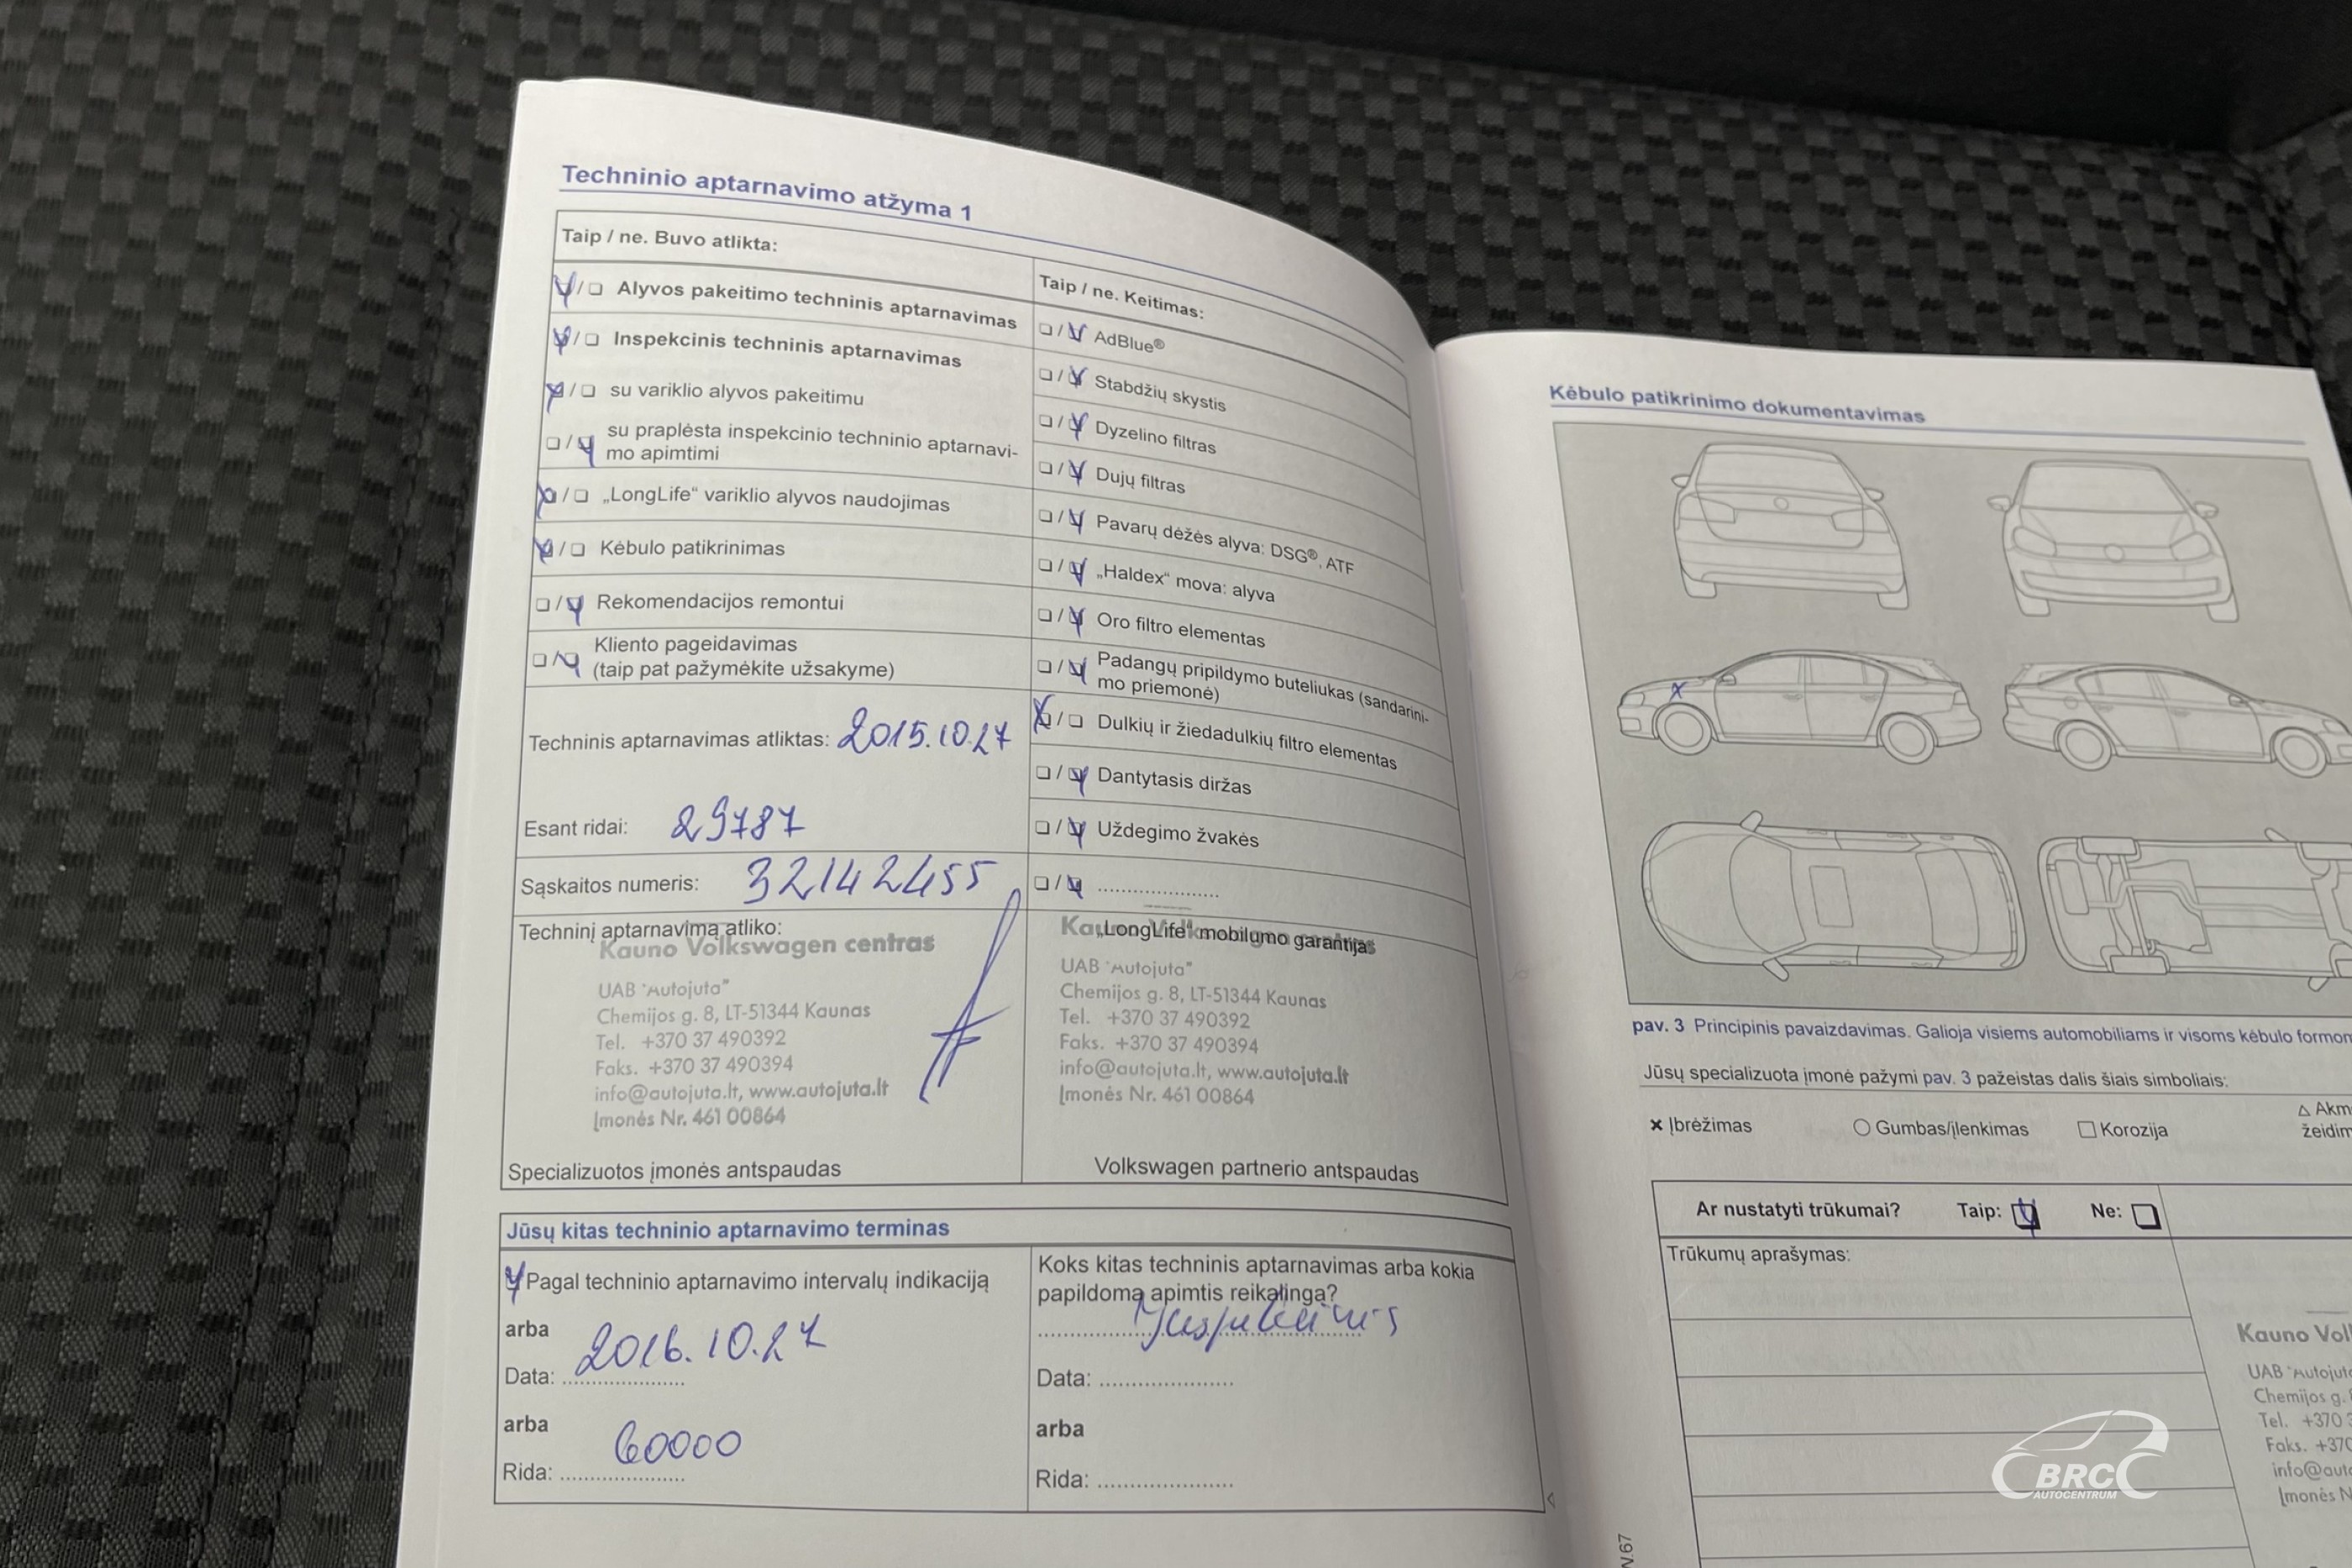 Techninio aptarnavimo atžyma 1
Taip / ne. Buvo atlikta:
Alyvos pakeitimo techninis aptarnavimas
Inspekcinis techninis aptarnavimas
su variklio alyvos pakeitimu
su praplėsta inspekcinio techninio aptarnavi-
mo apimtimi
„LongLife“ variklio alyvos naudojimas
Kėbulo patikrinimas
Rekomendacijos remontui
Kliento pageidavimas
(taip pat pažymėkite užsakyme)
Techninis aptarnavimas atliktas: 2015.10.27
Esant ridai: 29787
Sąskaitos numeris: 32142455
Techninį aptarnavimą atliko:
Kauno Volkswagen centras
UAB "Autojuta"
Chemijos g. 8, LT-51344 Kaunas
Tel. +370 37 490392
Faks. +370 37 490394
info@autojuta.lt, www.autojuta.lt
Įmonės Nr. 461 00864
Specializuotos įmonės antspaudas
Taip / ne. Keitimas:
AdBlue®
Stabdžių skystis
Dyzelino filtras
Dujų filtras
Pavarų dėžės alyva: DSG®, ATF
„Haldex“ mova: alyva
Oro filtro elementas
Padangų pripildymo buteliukas (sandarini-
mo priemonė)
Dulkių ir žiedadulkių filtro elementas
Dantytasis diržas
Uždegimo žvakės
„LongLife“ mobilumo garantija
Kauno Volkswagen centras
UAB "Autojuta"
Chemijos g. 8, LT-51344 Kaunas
Tel. +370 37 490392
Faks. +370 37 490394
info@autojuta.lt, www.autojuta.lt
Įmonės Nr. 461 00864
Volkswagen partnerio antspaudas
Jūsų kitas techninio aptarnavimo terminas
Pagal techninio aptarnavimo intervalų indikaciją
arba
Data: 2016.10.27
arba
Rida: 60000
Koks kitas techninis aptarnavimas arba kokia
papildoma apimtis reikalinga?
Data:
arba
Rida:
Kėbulo patikrinimo dokumentavimas
pav. 3 Principinis pavaizdavimas. Galioja visiems automobiliams ir visoms kėbulo formom
Jūsų specializuota įmonė pažymi pav. 3 pažeistas dalis šiais simboliais:
Įbrėžimas
Gumbas/įlenkimas
Korozija
Akm
žeidim
Ar nustatyti trūkumai? Taip: Ne:
Trūkumų aprašymas:
Kauno Vol
UAB "Autojut
Chemijos g.
Tel. +370
Faks. +370
info@auto
Įmonės N
N.67
BRC
AUTOCENTRUM